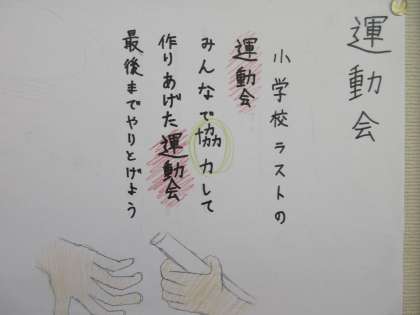 運動会
小学校ラストの
運動会
みんなで協力して
作りあげた運動会
最後までやりとげよう